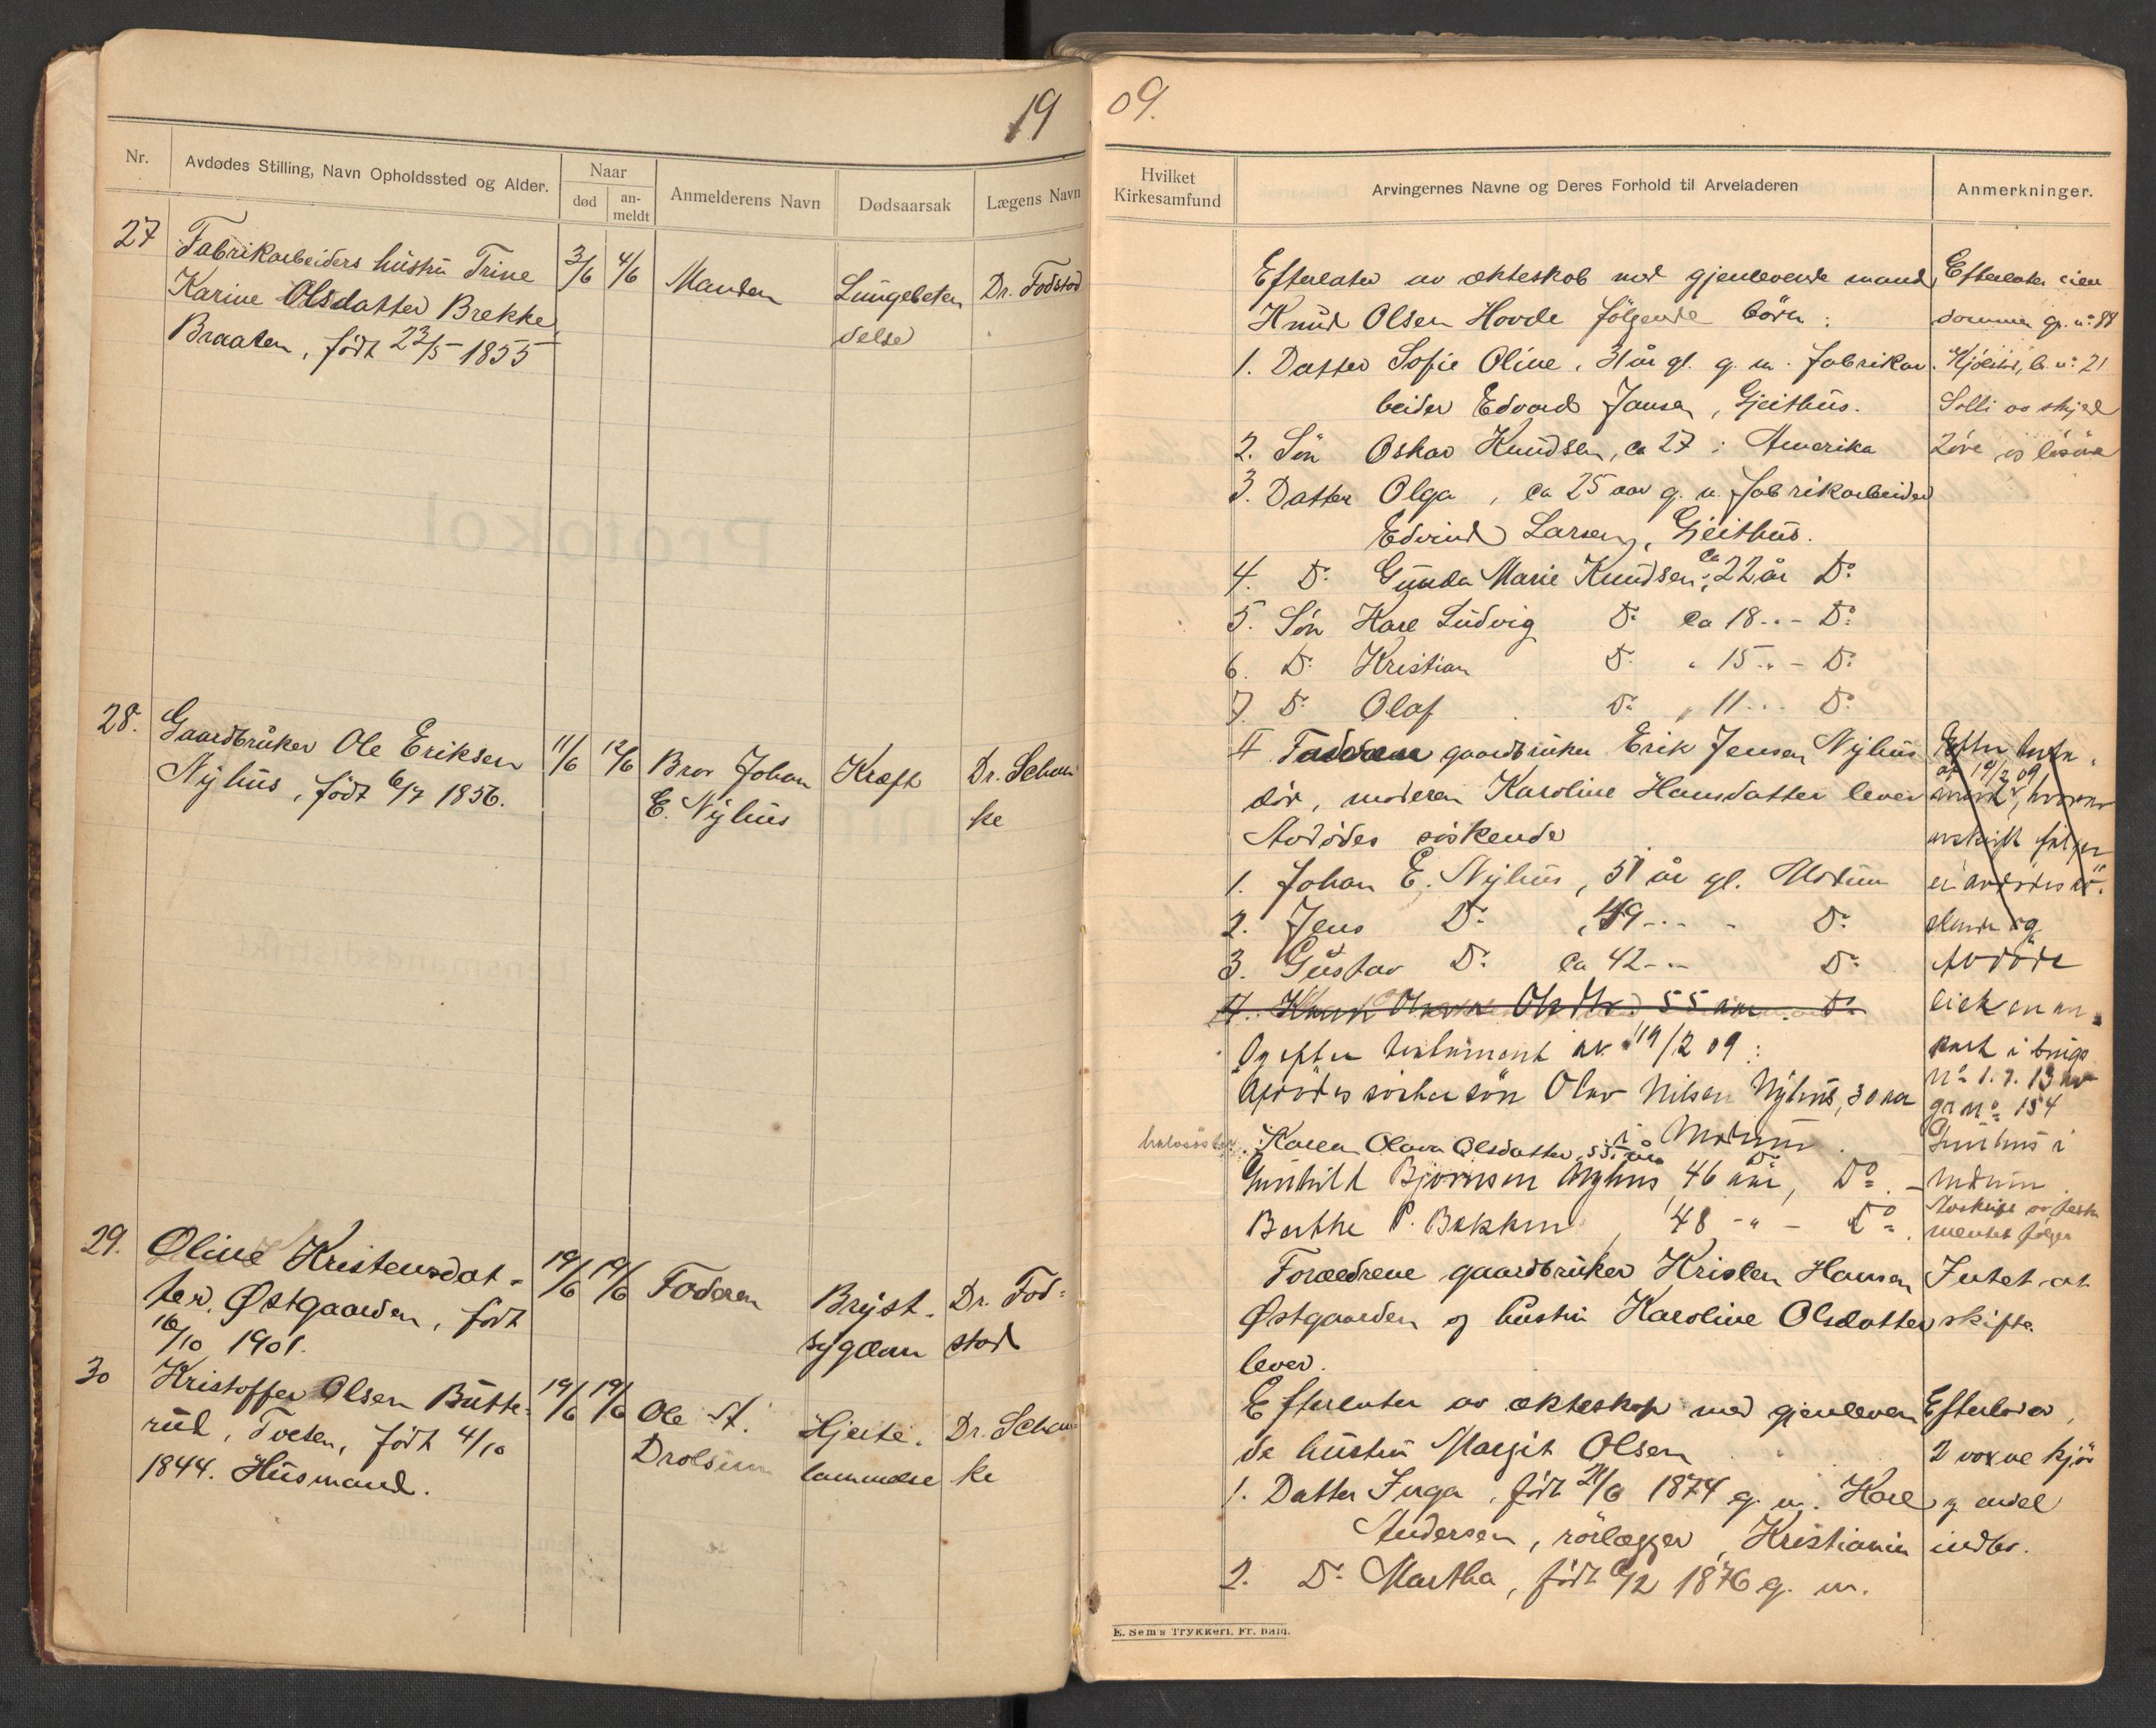 19
Nr.
Avdødes Stilling, Navn Opholdssted og Alder.
Naar
død
an-
meldt
Anmelderens Navn
Dødsaarsak
Lægens Navn
27
Fabrikarbeiders hustru Trine
Karine Olsdatter Brekke
Braaten, født 23/5 1855
3/6
4/6
Manden
Lungebeten
delse
Dr. Fodstad
28.
Gaardbruker Ole Eriksen
Nyhus, født 6/7 1856.
11/6
12/6
Bror Johan
E. Nyhus
Kræft
Dr. Schan
ke
29.
Oline Kristensdat-
ter, Østgaarden, født
16/10 1901.
19/6
19/6
Faderen
Bryst-
sygdom
Dr. Fod=
stad
30
Kristoffer Olsen Butte=
rud, Tveten, født 4/10
1844. Husmand.
19/6
19/6
Ole St.
Drolsum
Hjerte-
lammelse
Dr. Schan=
ke
09.
Hvilket
Kirkesamfund
Arvingernes Navne og Deres Forhold til Arveladeren
Anmerkninger.
Efterlater av ekteskab med gjenlevende mand
Knud Olsen Hovde følgende børn:
1. Datter Sofie Oline, 31 år gl. g. m. fabrikar
beider Edvard Jansen, Gjeithus.
2. Søn Oskar Knudsen, ca 27 i Amerika
3. Datter Olga, ca 25 aar g. m. fabrikarbeider
Edvind Larsen, Gjeithus.
4. Do Gunda Marie Knudsen, ca 22 år Do
5. Søn Karl Ludvig Do ca 18 -"- Do
6. Do Kristian Do " 15 " - Do
7. Do Olaf Do " 11 -"- Do
Efterlater eien
dommen gr. no 88
Kjølstad, b. no 21
Solli og skjød
Løre is løsøre
Faderen gaardbruker Erik Jensen Nyhus
død, moderen Karoline Hansdatter lever
Avdødes søskende
1. Johan E. Nyhus, 51 år gl. Modum
2. Jens Do, 49 -"- Do
3. Gustav Do ca 42 -"- Do
4. 55 aar Do
Og efter testament av 19/2 09:
Afdødes søstersøn Olav Nilsen Nyhus, 30 aar
i Modum
halvsøster Karen Olava Olsdatter, 55 aar Do
Gunhild Bjørnsen Nyhus, 46 aar, Do
Berthe P. Bakken, 48 -"- Do
Efter testa.
af 19/2 09
ment, hvorav
avskrift følger
er avdødes sø-
skende og
Avdøde
eiet en an
part i brugs
No 1. 7. 13 av
gr No 154
Gunhus i
Modum
Avskrift av testa
mentet følger
Forældrene gaardbruker Kristen Hansen
Østgaarden og hustru Karoline Olsdatter
lever.
Intet at
skifte
Efterlater av ekteskap med gjenleven
de hustru Margit Olsen
1. Datter Inga, født 21/6 1874 g. m. Karl
Andersen, rørlægger, Kristiania
2. Do Martha, født 6/12 1876 g. m.
Efterlater
2 voxne kjør
og endel
indbo.
E. Sem's Trykkeri, Fr. hald.